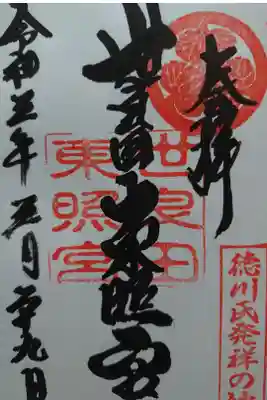 奉拝
徳川氏発祥の地
世良田東照宮
世良田
東照宮
令和三年五月二十九日